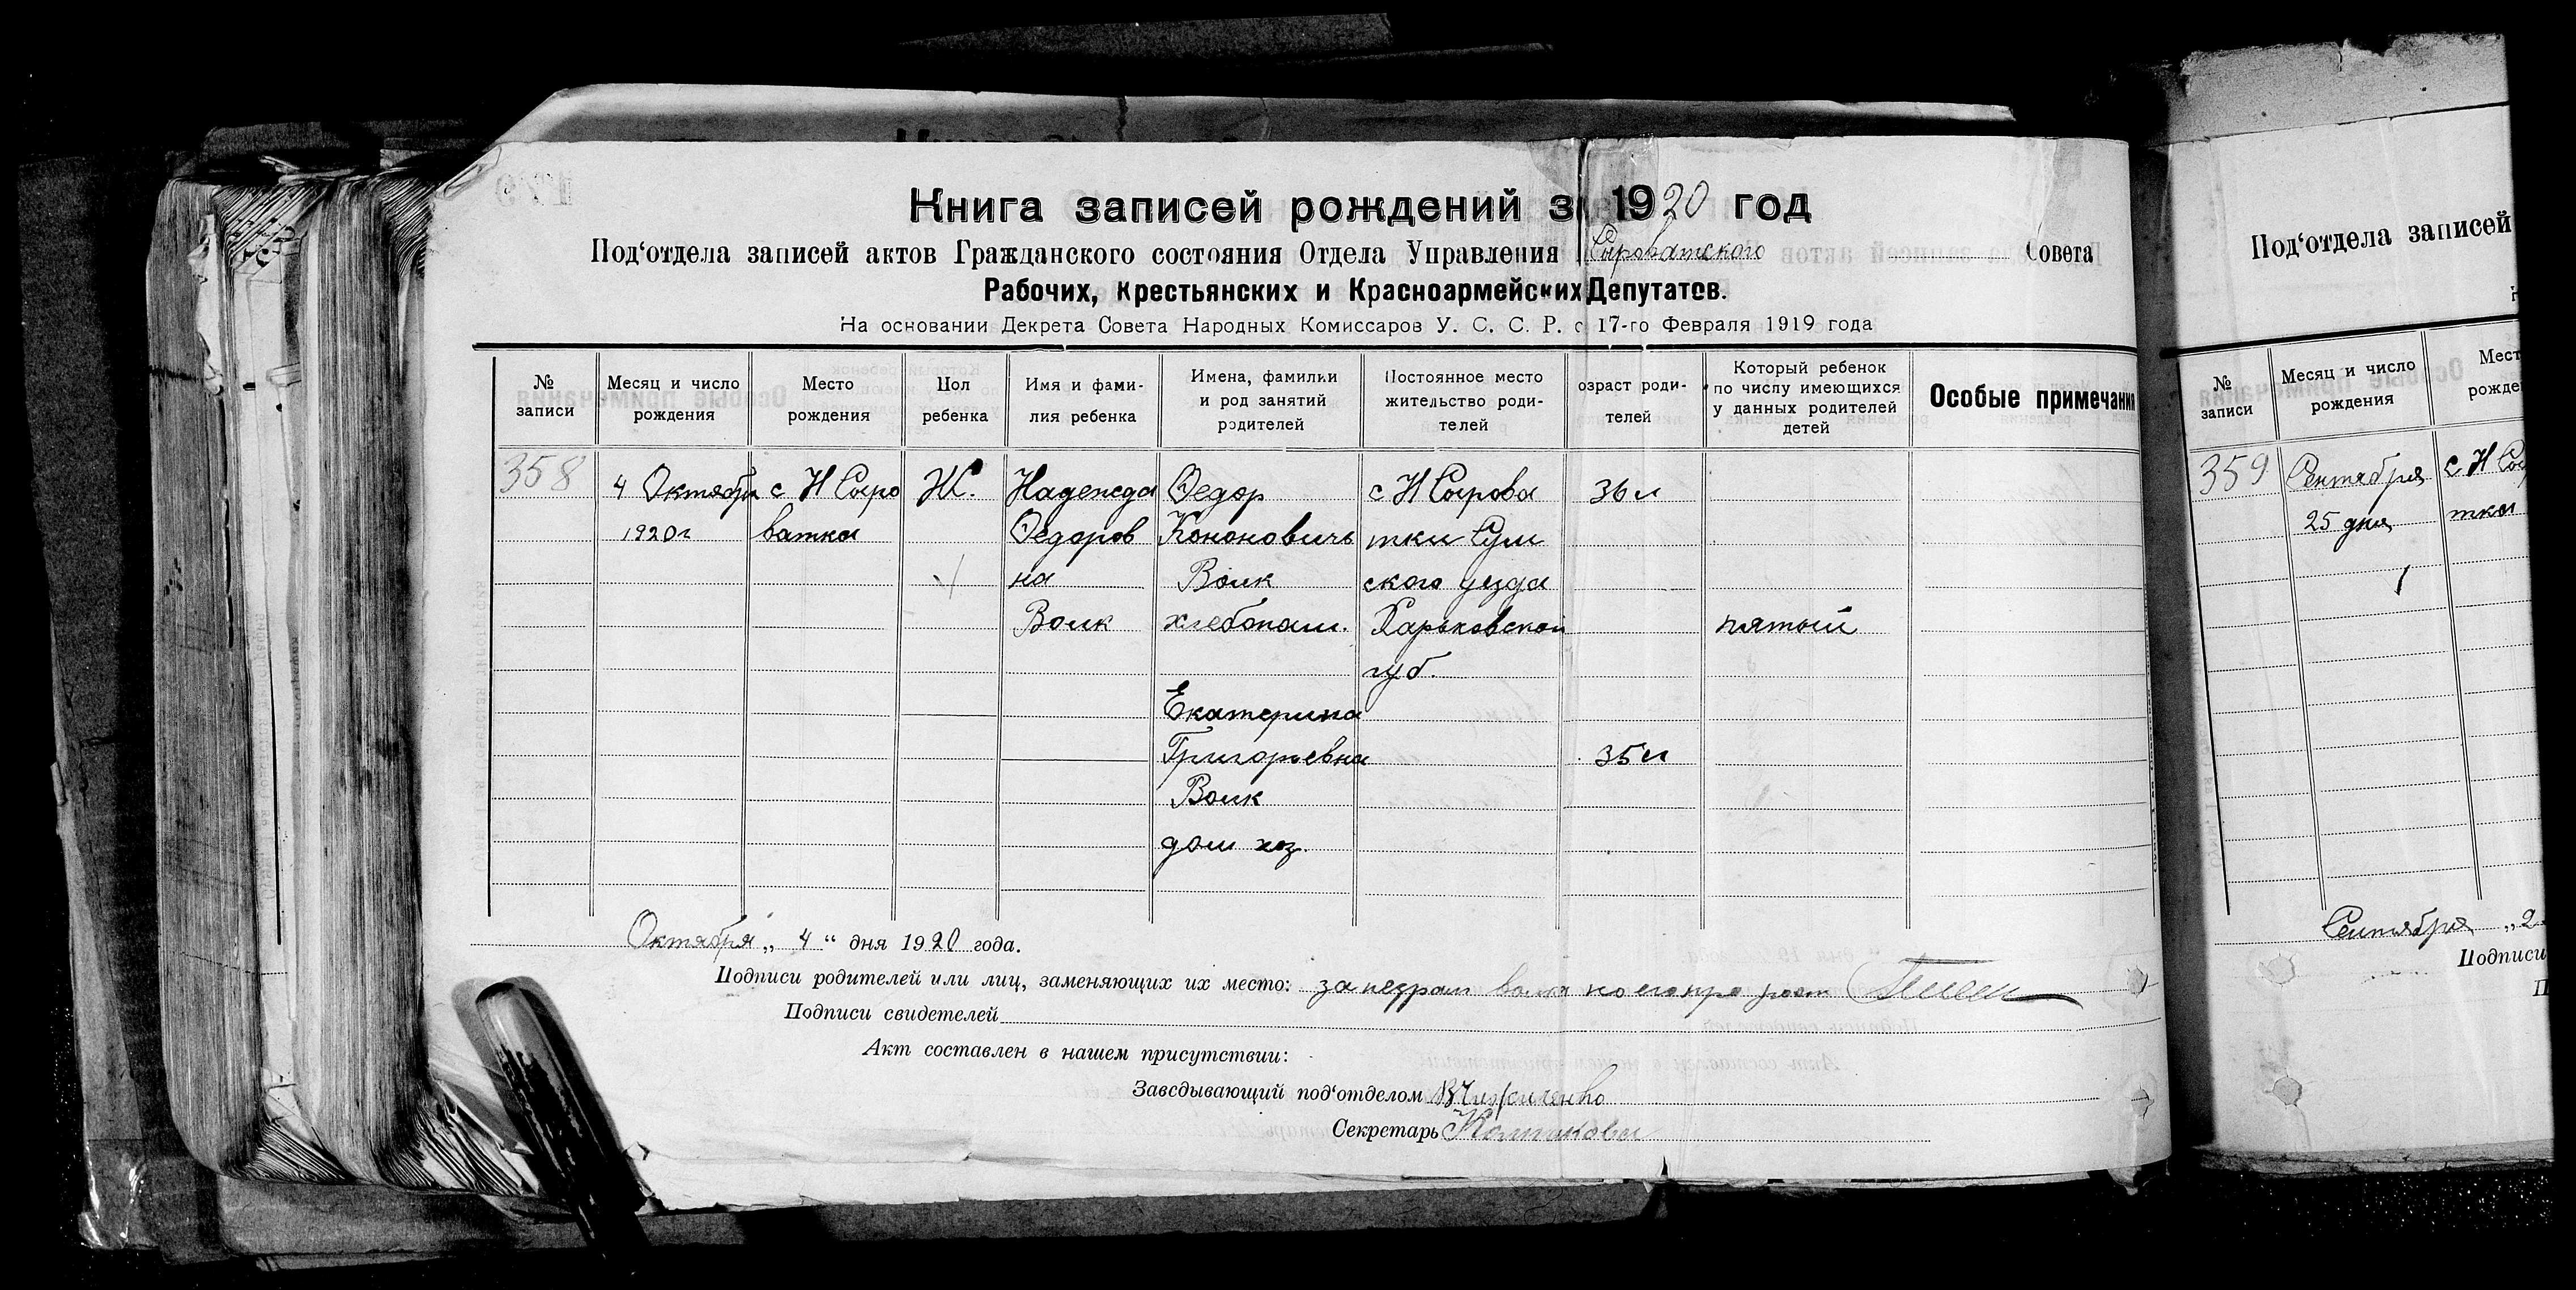 Книга записей рождений за 1920 год
Под‘отдела записей актов Гражданского состояния Отдела Управления Сыроватского Совета
Рабочих, Крестьянских и Красноармейских Депутатов.
На основании Декрета Совета Народных Комиссаров У. С. С. Р. с 17-го Февраля 1919 года
№ записи
Месяц и число рождения
Место рождения
Пол ребенка
Имя и фами-
лия ребенка
Имена, фамилии
и род занятий
родителей
Постоянное место
жительство роди-
телей
озраст роди-
телей
Который ребенок
по числу имеющихся
у данных родителей
детей
Особые примечания
358
4 Октября
1920г
с Н Сыро
ватка
Ж.
Надежда
Федоров
на
Волк
Федор
Кононовичь
Волк
хлебопаш.
Екатерина
Григорьевна
Волк
дом хоз.
с Н Сырова
тки Сум
ского уезда
Харьковской
губ.
36 л
35 л
пятый
Октября „ 4 “ дня 1920 года.
Подписи родителей или лиц, заменяющих их место: за неграм
Подписи свидетелей
Акт составлен в нашем присутствии:
Заведывающий под‘отделом
Секретарь
Под‘отдела записей
№ записи
Месяц и число
рождения
Мест
рожде
359
Сентября
25 дня
с Н Сы
тка
Сентября „2
Подписи
П